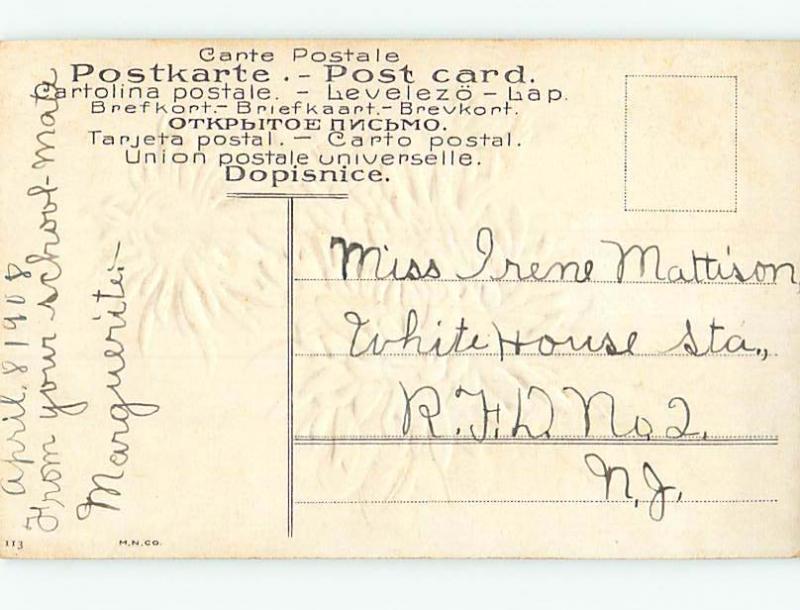 Carte Postale
Postkarte . – Post card.
Cartolina postale. – Levelezö – Lap.
Brefkort.– Briefkaart.– Brevkort.
ОТКРЫТОЕ ПИСЬМО.
Tarjeta postal. – Carto postal.
Union postale universelle.
Dopisnice.
April. 8 1908
From your school-mate
Marguerite.–
Miss Irene Mattison,
White House Sta.,
R.F.D. No. 2.
N.J.
113
M.N.CO.